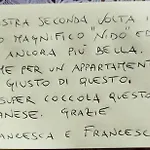 STRA SECONDA VOLTA I
O MAGNIFICO "NIDO" ED
ANCORA PIÙ BELLA.
ME PER UN APPARTAMENT
GIUSTO DI QUESTO.
SUPER COCCOLA QUESTO
ANESE. GRAZIE
ANCESCA E FRANCESC